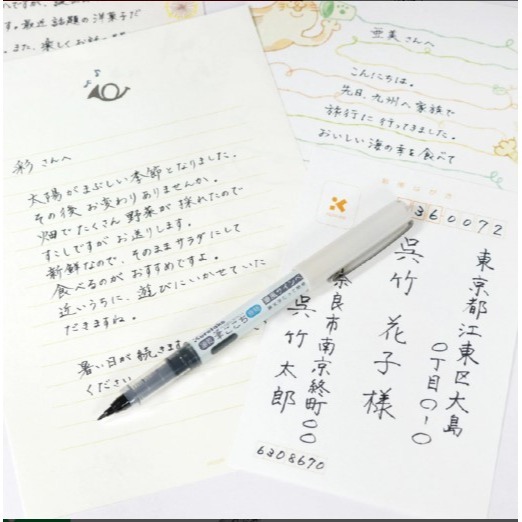 です。最近話題の洋菓子が
また、楽しくお話
彩さんへ
太陽がまぶしい季節となりました。
その後お変わりありませんか。
畑でたくさん野菜が採れたので
すこしですがお送りします。
新鮮なので、そのままサラダにして
食べるのがおすすめですよ。
近いうちに、遊びにいかせていた
だきますね。
暑い日が続きます
ください
亜美さんへ
こんにちは。
先日、九州へ家族で
旅行に行ってきました。
おいしい海の幸を食べて
郵便はがき
360072
東京都江東区大島
〇丁目〇-〇
呉竹 花子様
奈良市南京終町〇〇
呉竹 太郎
6308670
Kuretake
まごこち
筆風サインペン